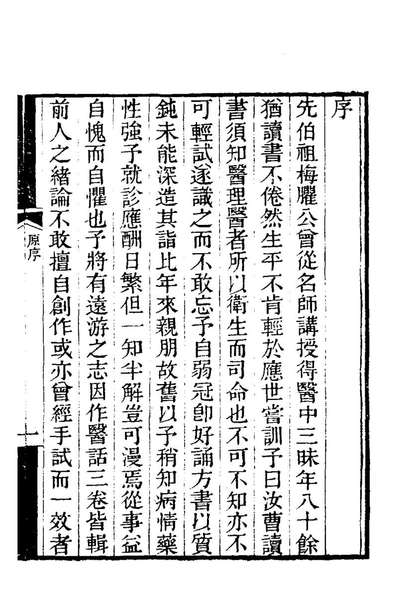 序
先伯祖梅臞公曾從名師講授得醫中三昧年八十餘
猶讀書不倦然生平不肯輕於應世嘗訓予曰汝曹讀
書須知醫理醫者所以衛生而司命也不可不知亦不
可輕試遂識之而不敢忘予自弱冠卽好誦方書以質
鈍未能深造其詣比年來親朋故舊以予稍知病情藥
性強予就診應酬日繁但一知半解豈可漫焉從事益
自愧而自懼也予將有遠游之志因作醫話三卷皆輯
前人之緒論不敢擅自創作或亦曾經手試而一效者
原序
一